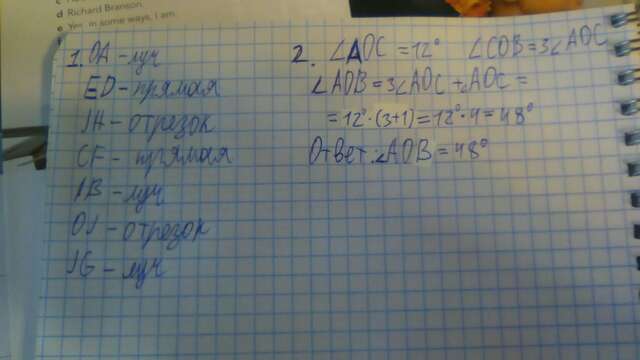 d Richard Branson.
e Yes, in some ways, I am.
1. OA - луч
ED - прямая
JH - отрезок
CF - прямая
JB - луч
OJ - отрезок
JG - луч
2. ∠AOC = 12° ∠COB = 3∠AOC
∠AOB = 3∠AOC + ∠AOC =
= 12° · (3+1) = 12° · 4 = 48°
Ответ: ∠AOB = 48°